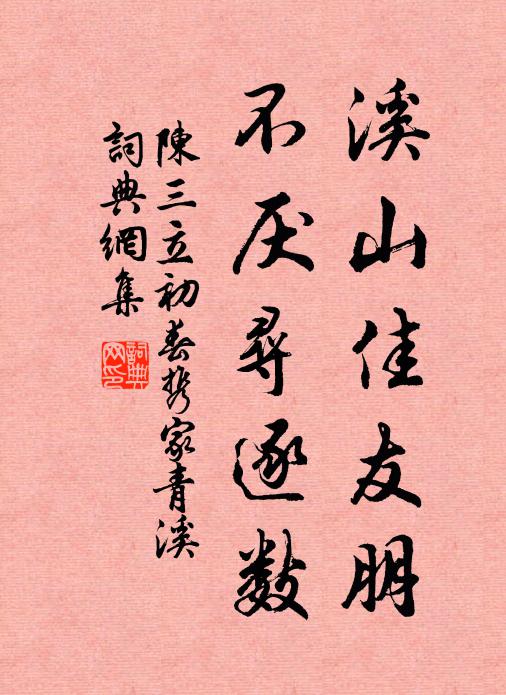 溪山佳友朋
不厌尋逐数
陳三立初春携家青溪
詞典網集
詞典网印